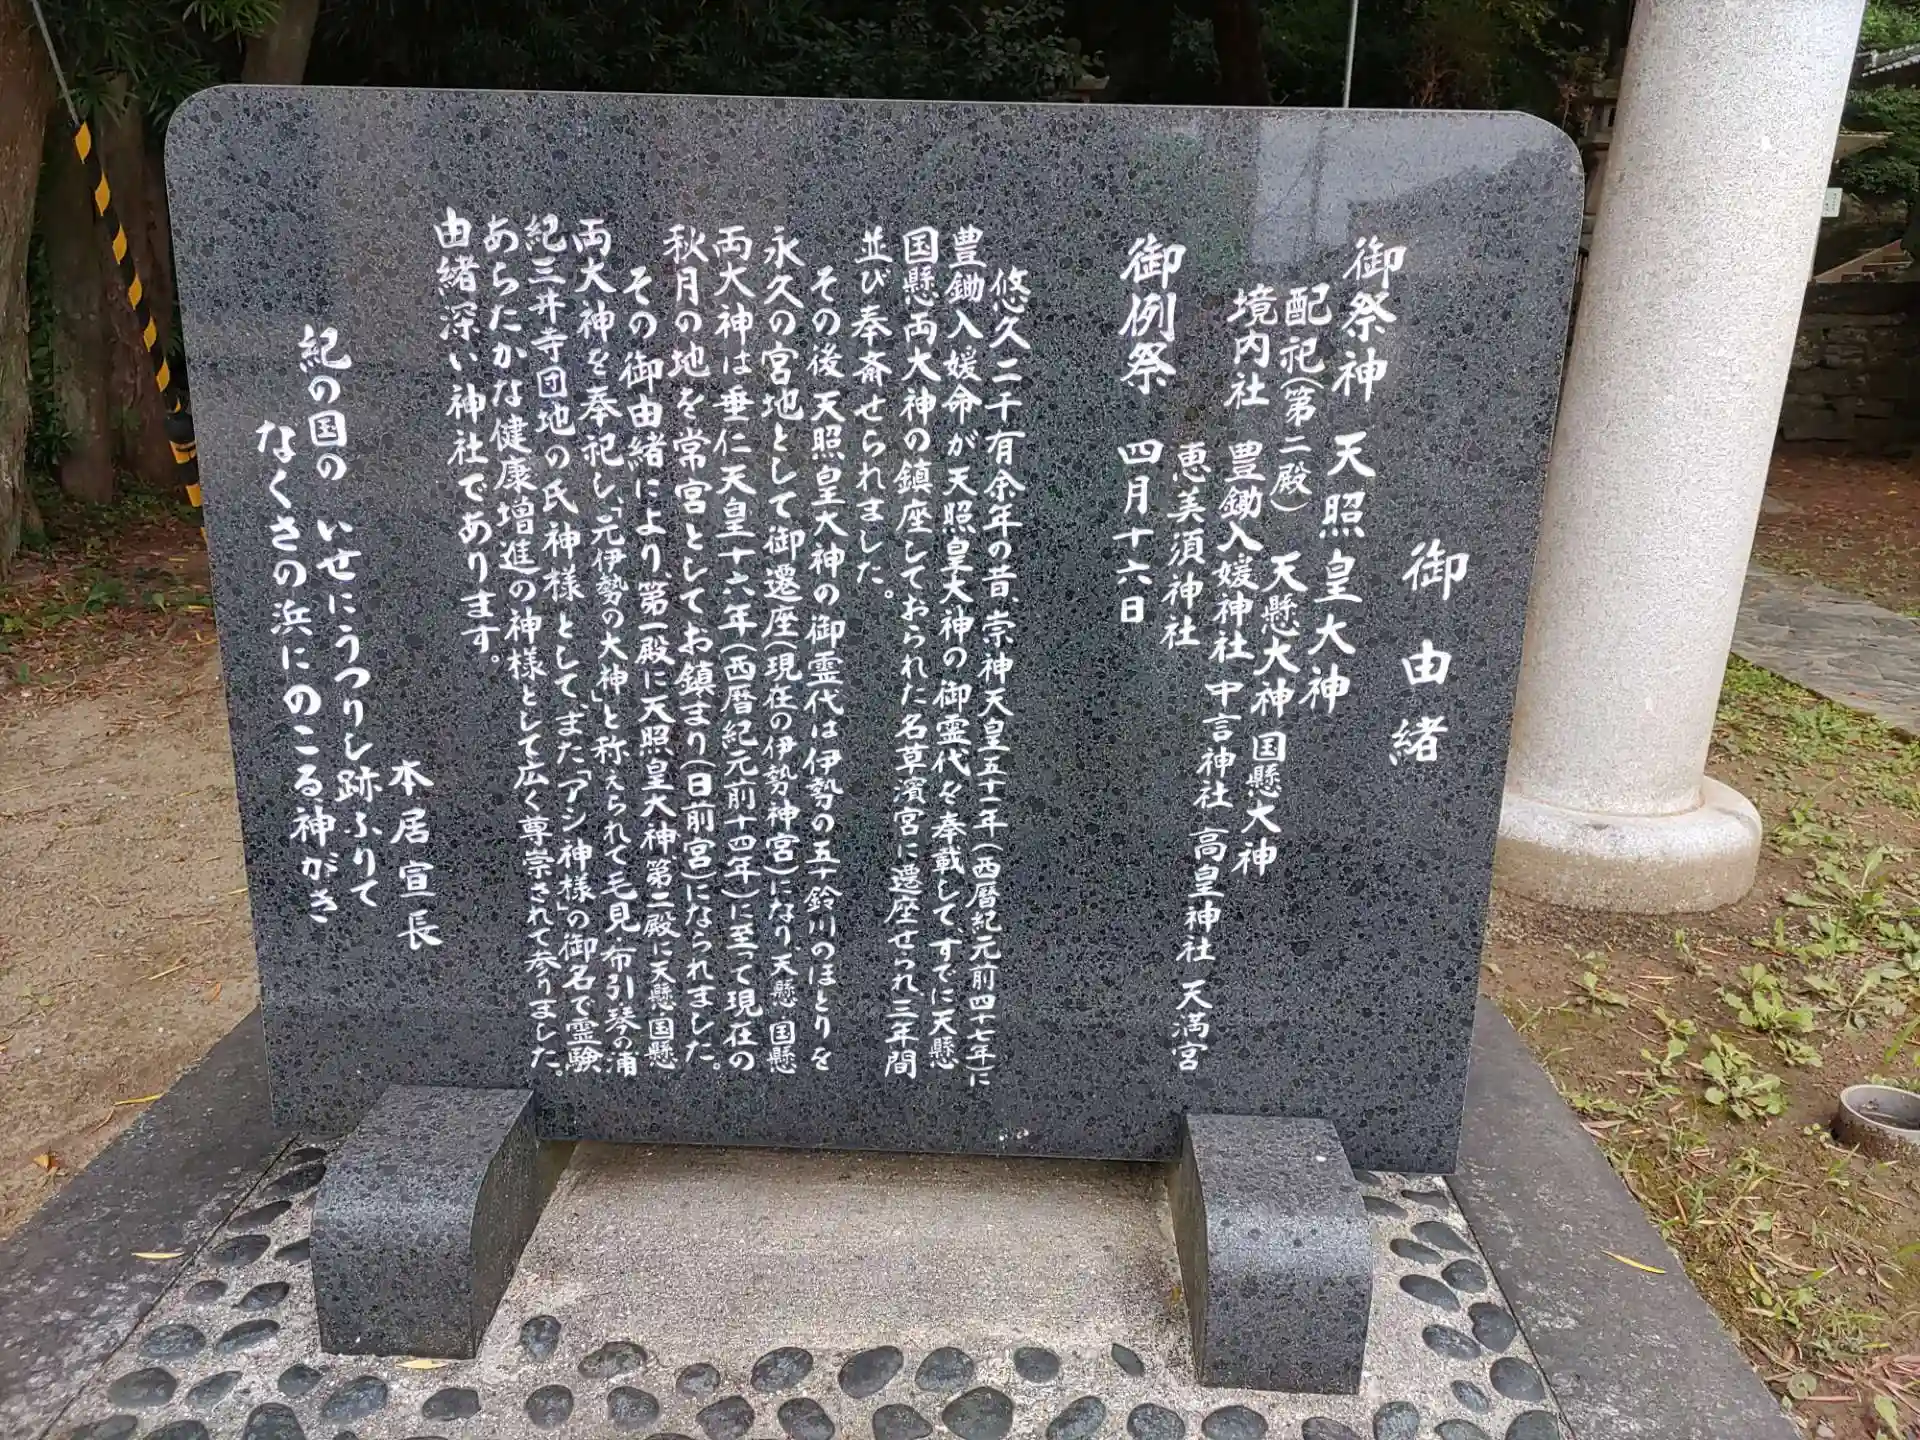 御由緒
御祭神 天照皇大神
配祀(第二殿) 天懸大神 国懸大神
境内社 豊鋤入媛神社 中言神社 高皇神社 天満宮
恵美須神社
御例祭 四月十六日
悠久二千有余年の昔、崇神天皇五十一年(西暦紀元前四十七年)に
豊鋤入媛命が天照皇大神の御霊代を奉戴して、すでに天懸
国懸両大神の鎮座しておられた名草濱宮に遷座せられ、三年間
並び奉斎せられました。
その後天照皇大神の御霊代は伊勢の五十鈴川のほとりを
永久の宮地として御遷座(現在の伊勢神宮)になり、天懸 国懸
両大神は垂仁天皇十六年(西暦紀元前十四年)に至って現在の
秋月の地を常宮としてお鎮まり(日前宮)になられました。
その御由緒により、第一殿に天照皇大神、第二殿に天懸・国懸
両大神を奉祀し、「元伊勢の大神」と称えられて毛見・布引・琴の浦
紀三井寺団地の氏神様として、また「アシ神様」の御名で霊験
あらたかな健康増進の神様として広く尊崇されて参りました。
由緒深い神社であります。
本居宣長
紀の国の いせにうつりし跡ふりて
なくさの浜にのこる神がき